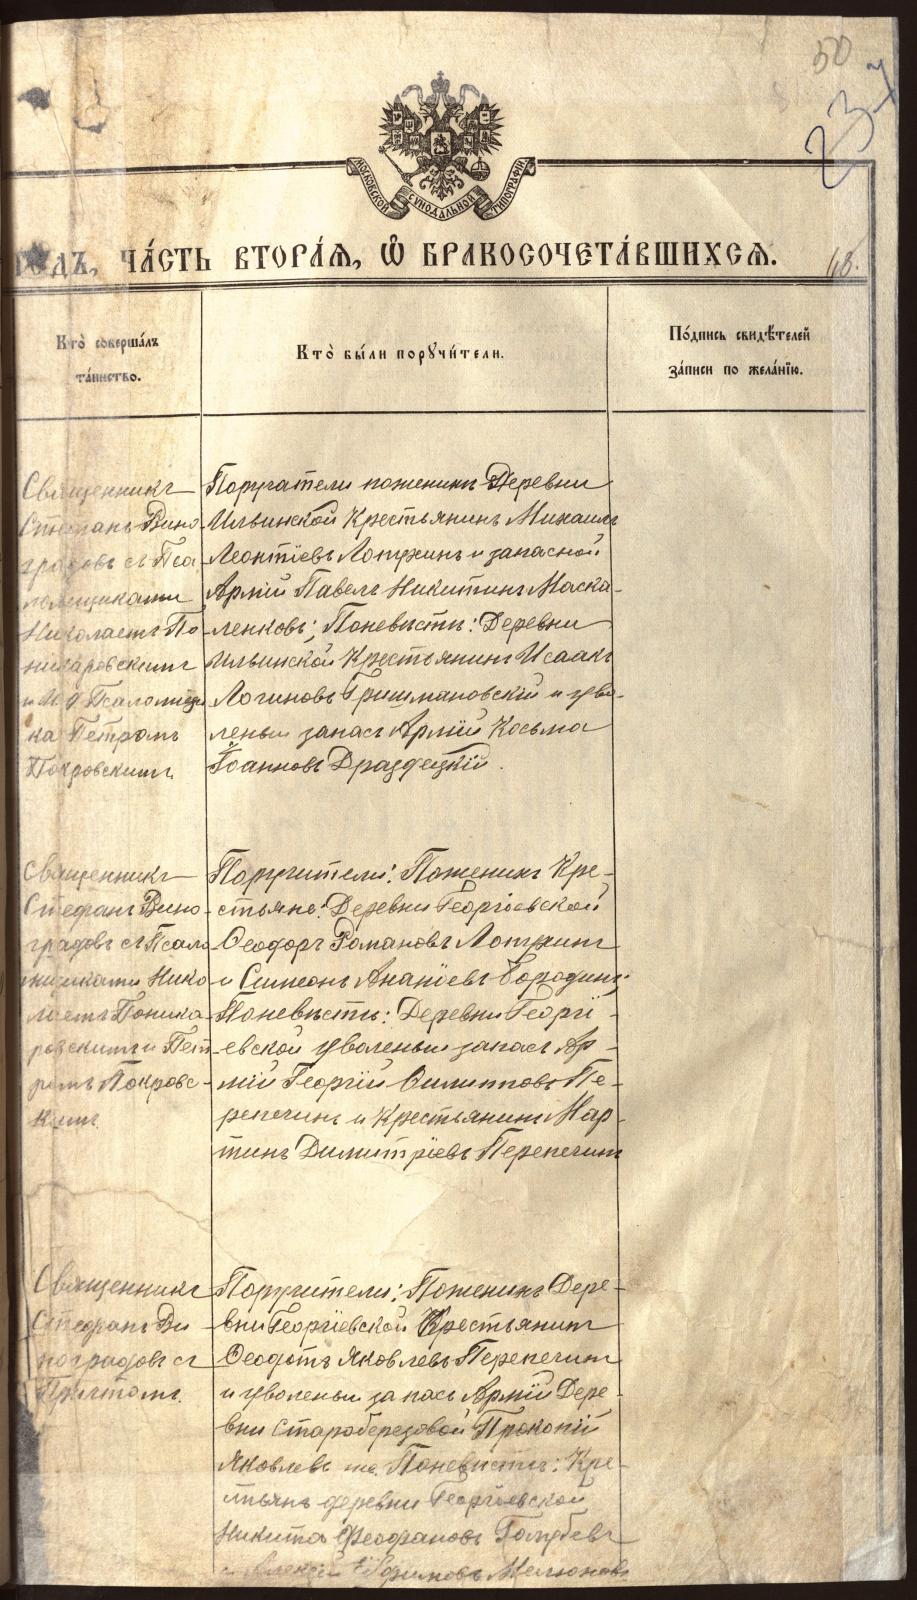 50
237
МОСКОВСКОЙ СУНОДАЛЬНОЙ ТИПОГРАФІИ
ГОДЪ, ЧА́СТЬ ВТОРА́Я, Ѽ БРАКОСОЧЕТА́ВШИХСЯ.
48.
Кто̀ соверша́лъ
та́инство.
Кто̀ бы́ли порꙋчи́тели.
По́дпись свидѣ́телей
за́писи по жела́нїю.
Священникъ
Стефанъ Вино
градовъ съ Пса
ломщиками
Николаемъ По
никаровскимъ
и Псаломщи
ка Петромъ
Покровскимъ
Поручатели поженихѣ Деревни
Ильинской Крестьянинъ Михаилъ
Леонтіевъ Лотжинъ и запасной
Арміи Павелъ Никитинъ Маска-
ленковъ; Поневѣстѣ: Деревни
Ильинской Крестьянинъ Исаакъ
Логиновъ Гришмановскій и уво-
леный запасъ Арміи Косьма
Іоанновъ Драздецкій.
Священникъ
Стефанъ Вино-
градовъ съ Псало
мщиками Нико
лаемъ Поника-
ровскимъ и Пет
ромъ Покровс-
кимъ
Поручители: Поженихѣ Кре-
стьяне: Деревни Георгіевской
Ѳеодоръ Романовъ Лотжинъ
и Симеонъ Ананіевъ Бородинъ;
Поневѣстѣ: Деревни Георгі-
евской уволеный запасъ Ар-
міи Георгій Филипповъ Пе-
репечинъ и Крестьянинъ Мар-
тинъ Димитріевъ Перепечинъ
Священникъ
Стефанъ Ви
ноградовъ съ
Причтомъ.
Поручители: Поженихѣ Дере-
вни Георгіевской Крестьянинъ
Ѳеодотъ Яковлевъ Перепечинъ
и уволеный запасъ Арміи Дере-
вни Староберезовой Прокопій
Яковлевъ Поневѣстѣ: Кре-
стьянъ деревни Георгіевской
Никита Феофановъ Голубевъ
и Алексей Ефимовъ